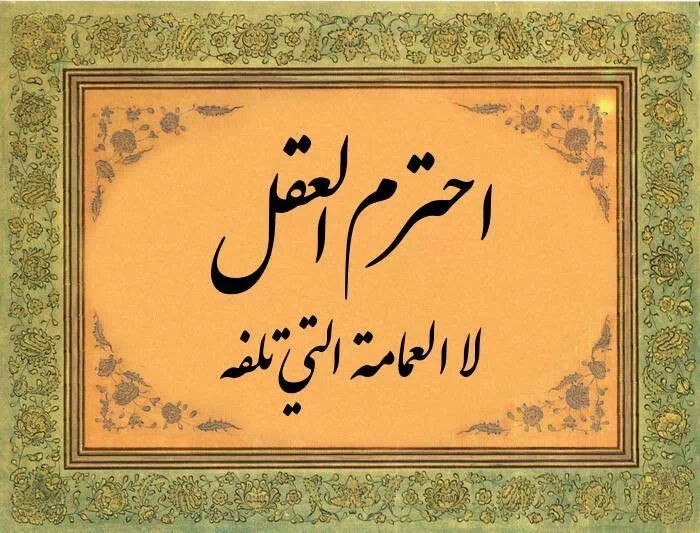 احترم العقل
لا العمامة التي تلفه